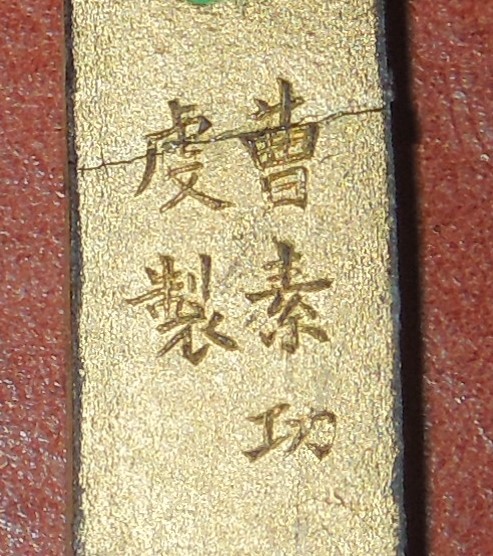 曹素功
虔製